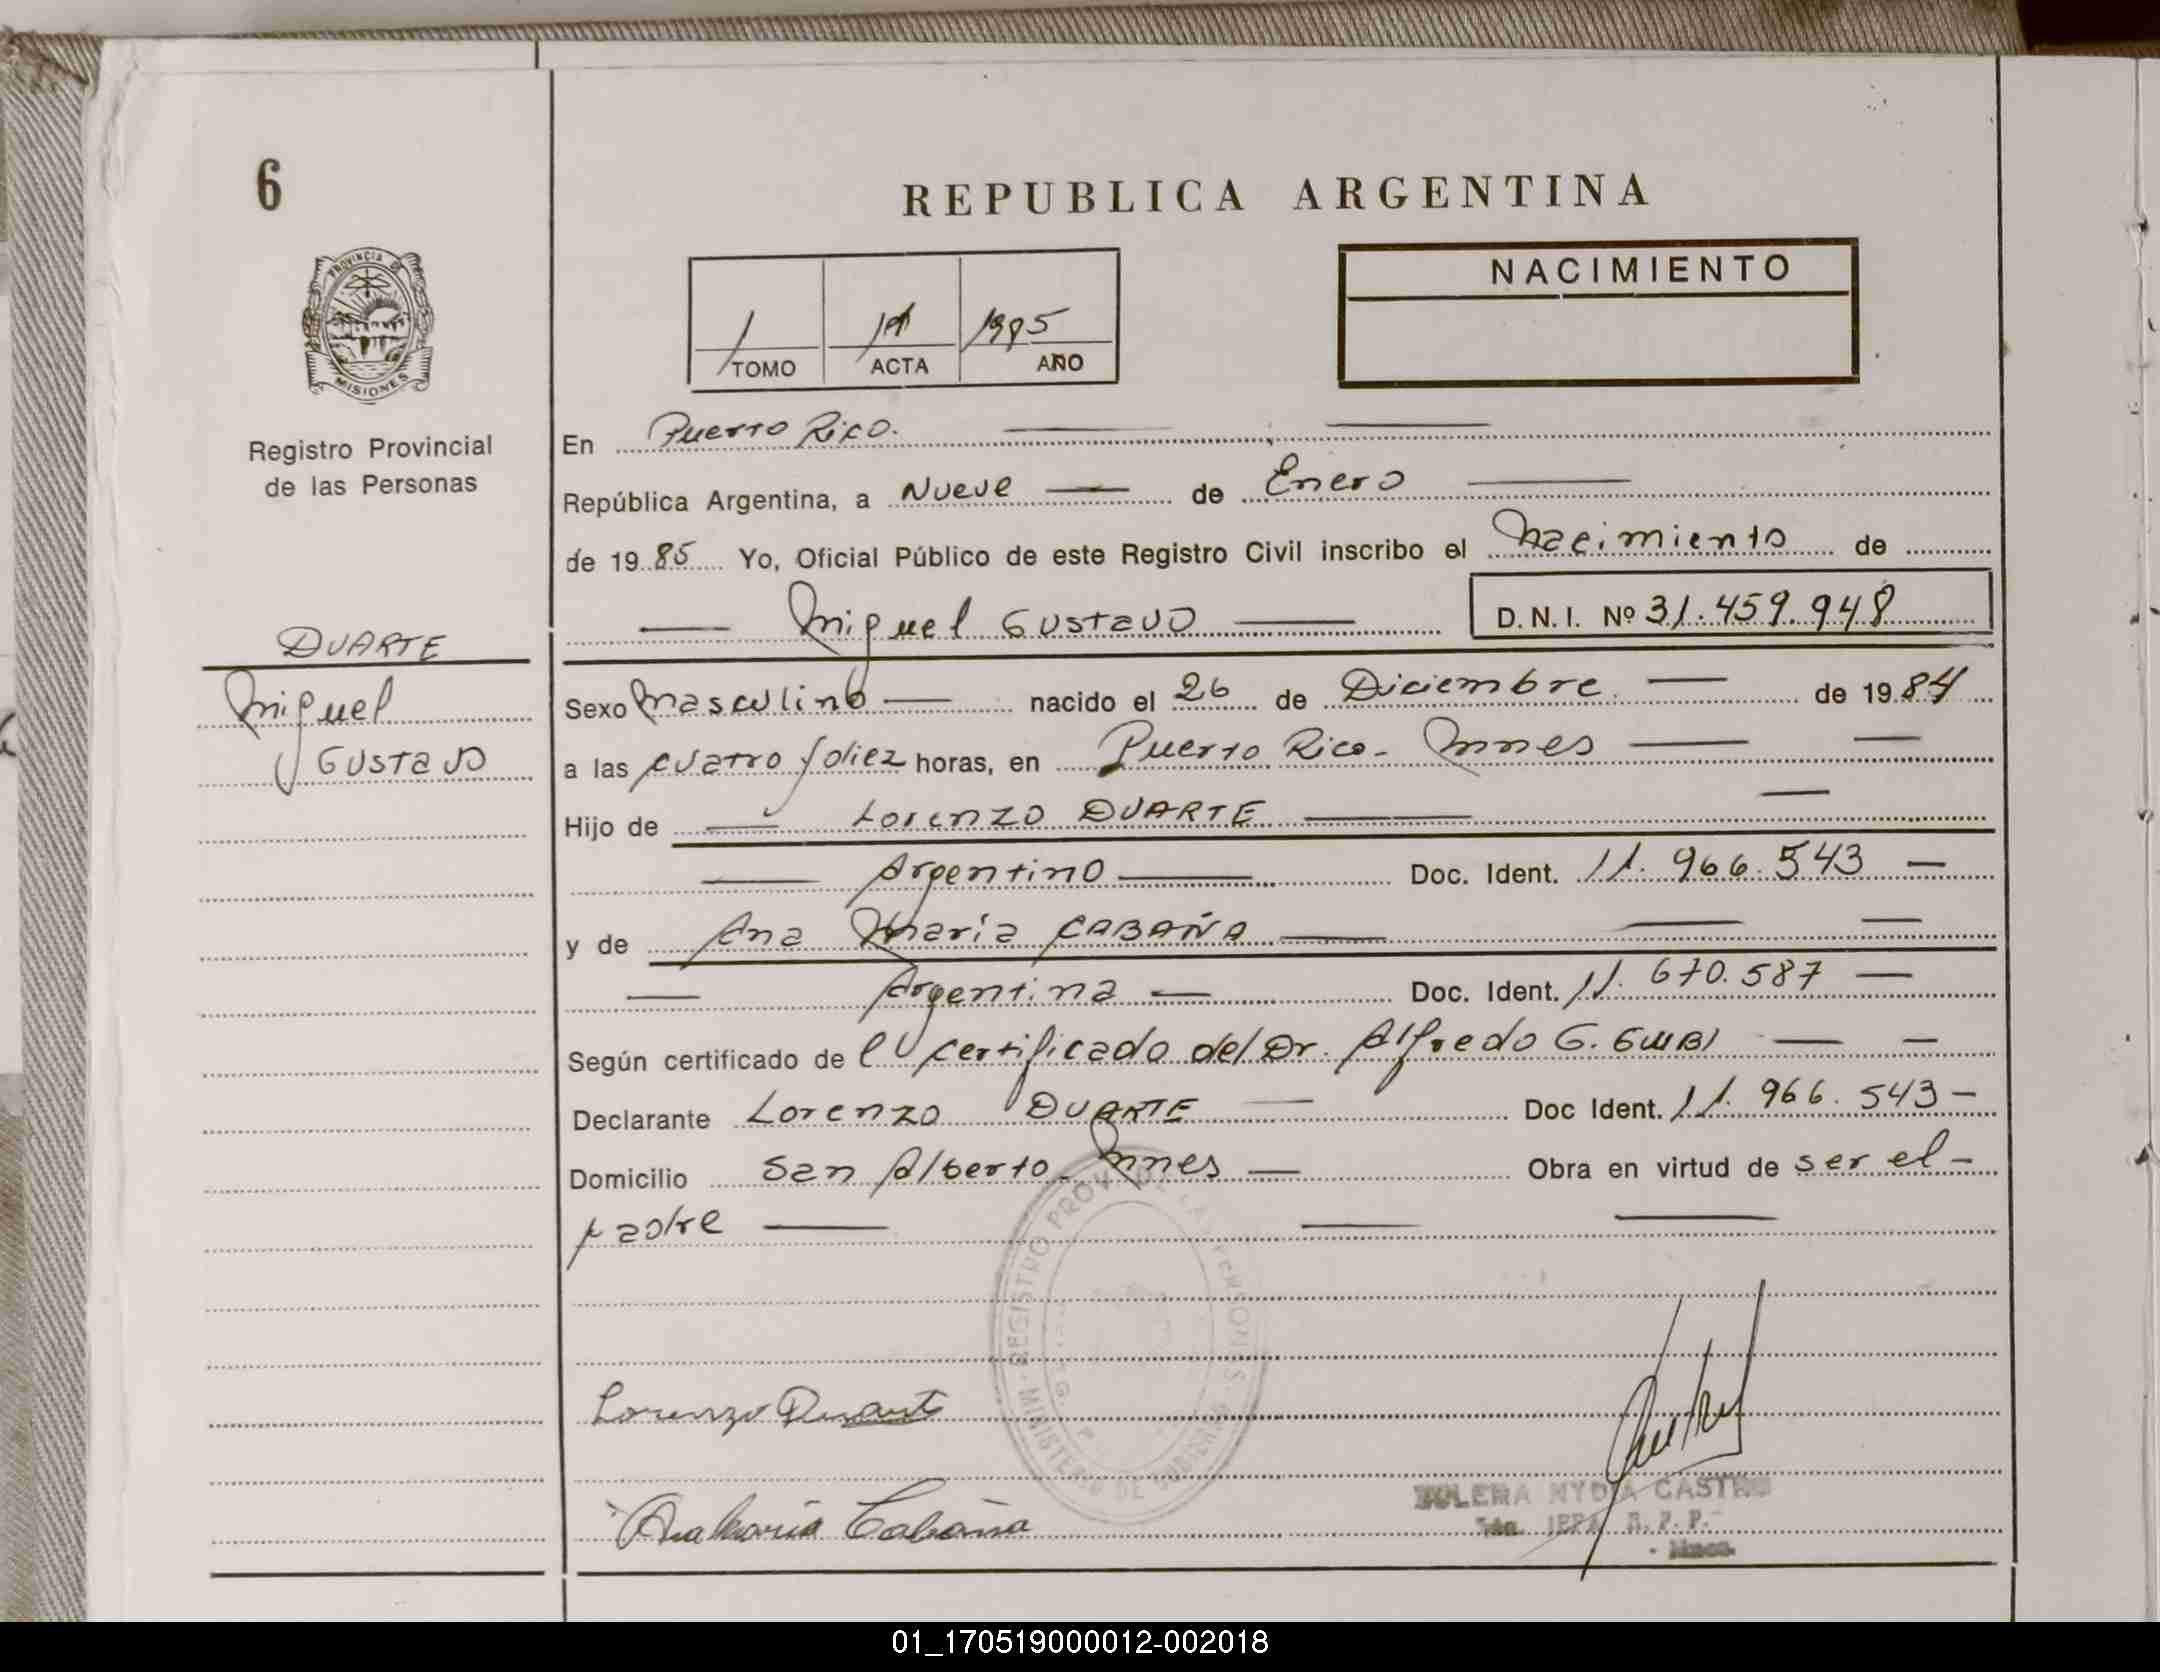 6
REPUBLICA ARGENTINA
PROVINCIA DE
MISIONES
Registro Provincial
de las Personas
1 TOMO
ACTA
1985 AÑO
NACIMIENTO
En Puerto Rico.
República Argentina, a Nueve de Enero
de 1985 Yo, Oficial Público de este Registro Civil inscribo el Nacimiento de
Miguel Gustavo D.N.I. Nº 31.459.948
DUARTE
Miguel
Gustavo
Sexo Masculino nacido el 26 de Diciembre de 1984
a las cuatro y diez horas, en Puerto Rico - Mnes
Hijo de Lorenzo DUARTE
Argentino Doc. Ident. 11.966.543
y de Ana María CABAÑA
Argentina Doc. Ident. 11.670.587
Según certificado de l certificado del Dr. Alfredo G.
Declarante Lorenzo DUARTE Doc Ident. 11.966.543
Domicilio San Alberto Mnes Obra en virtud de ser el
padre
REGISTRO PROV. DE LAS PERSONAS
MINISTERIO DE GOBIERNO
Lorenzo Duarte
Ana Maria Cabaña
NYDIA CASTRO
R. P. P.
01_170519000012-002018